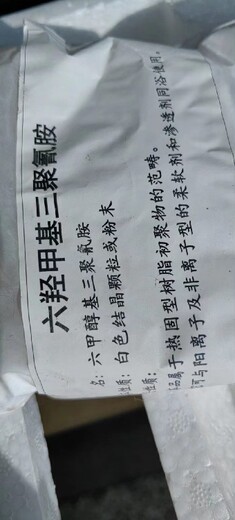 六羟甲基三聚氰胺
名：六甲醇基三聚氰胺
性质：白色结晶颗粒或粉末
性质：
品属于热固型树脂初聚物的范畴。
可与阳离子及非离子型的柔软剂和渗透剂同浴使用。